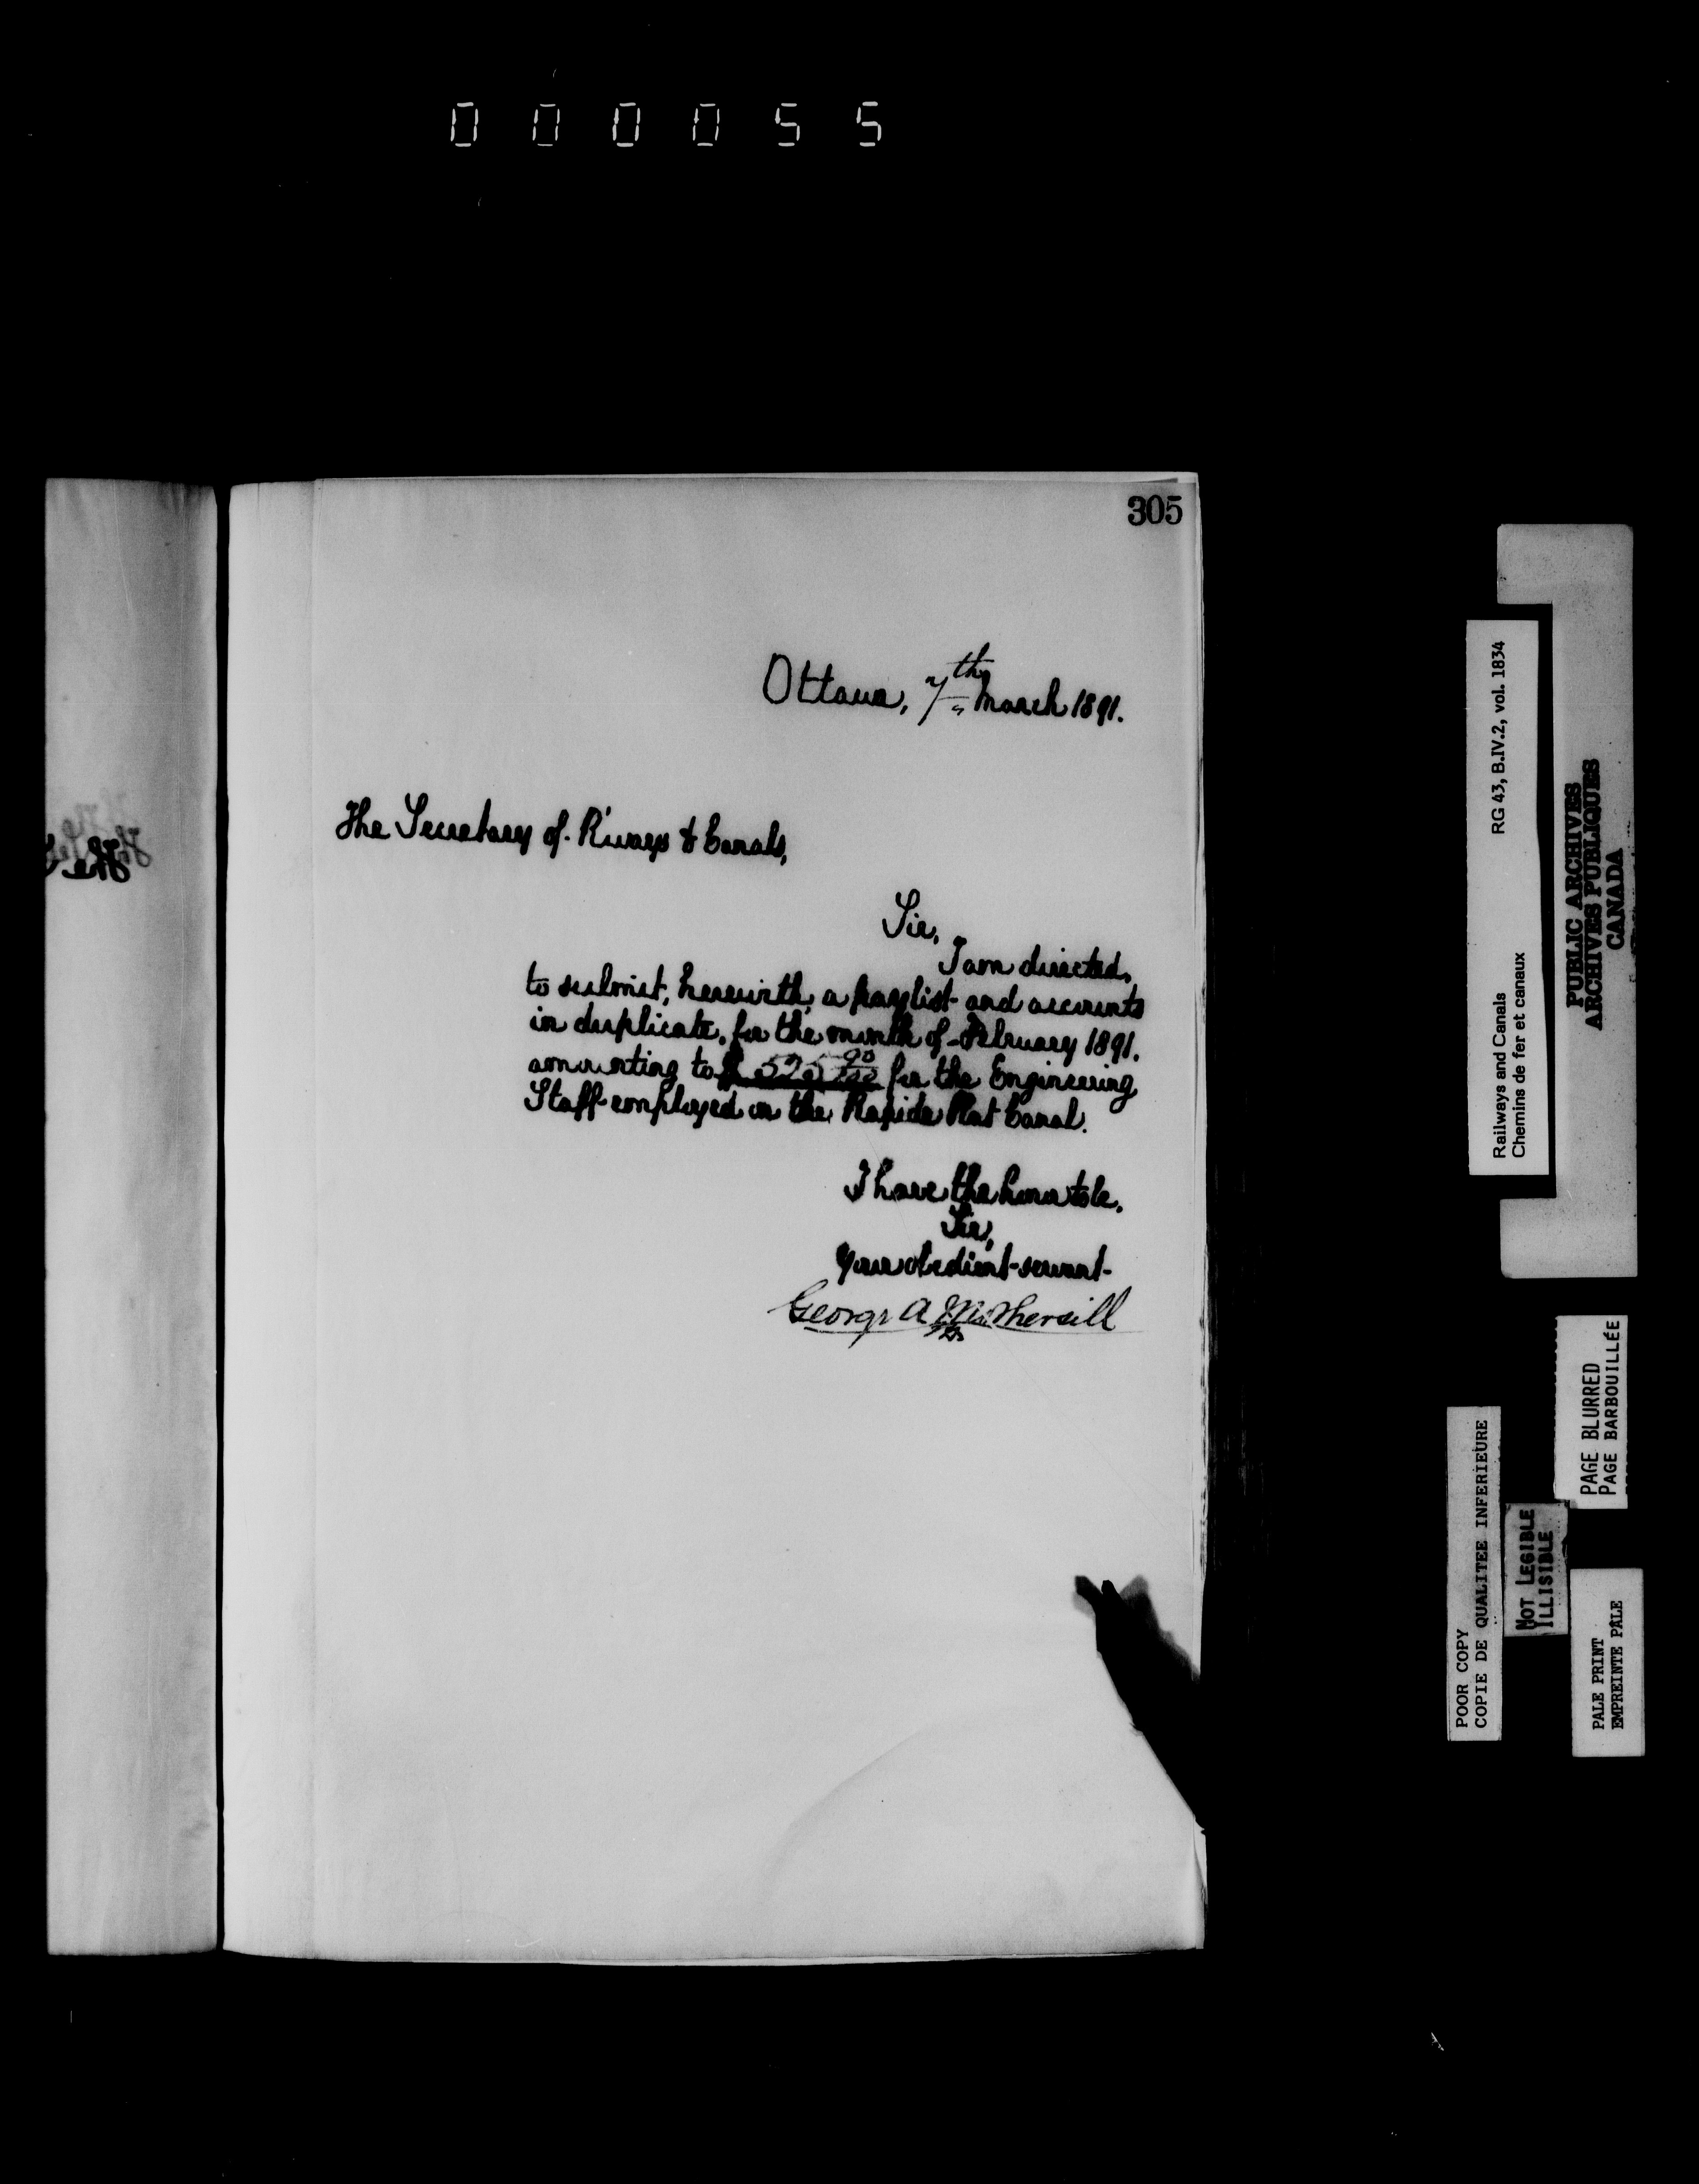 000055
305
Ottawa, 7th March 1891.
The Secretary of R'ways & Canals,
Sir,
I am directed,
to submit, herewith, a paylist and accounts
in duplicate, for the month of February 1891.
amounting to $525 90/100 for the Engineering
Staff employed on the Rapide Plat Canal.
I have the honor to be,
Sir,
Your obedient servant
George A Mothersill
Railways and Canals RG 43, B.IV.2, vol. 1834
Chemins de fer et canaux
PUBLIC ARCHIVES
ARCHIVES PUBLIQUES
CANADA
PAGE BLURRED
PAGE BARBOUILLÉE
POOR COPY
COPIE DE QUALITEE INFERIEURE
NOT LEGIBLE
ILLISIBLE
PALE PRINT
EMPREINTE PÂLE